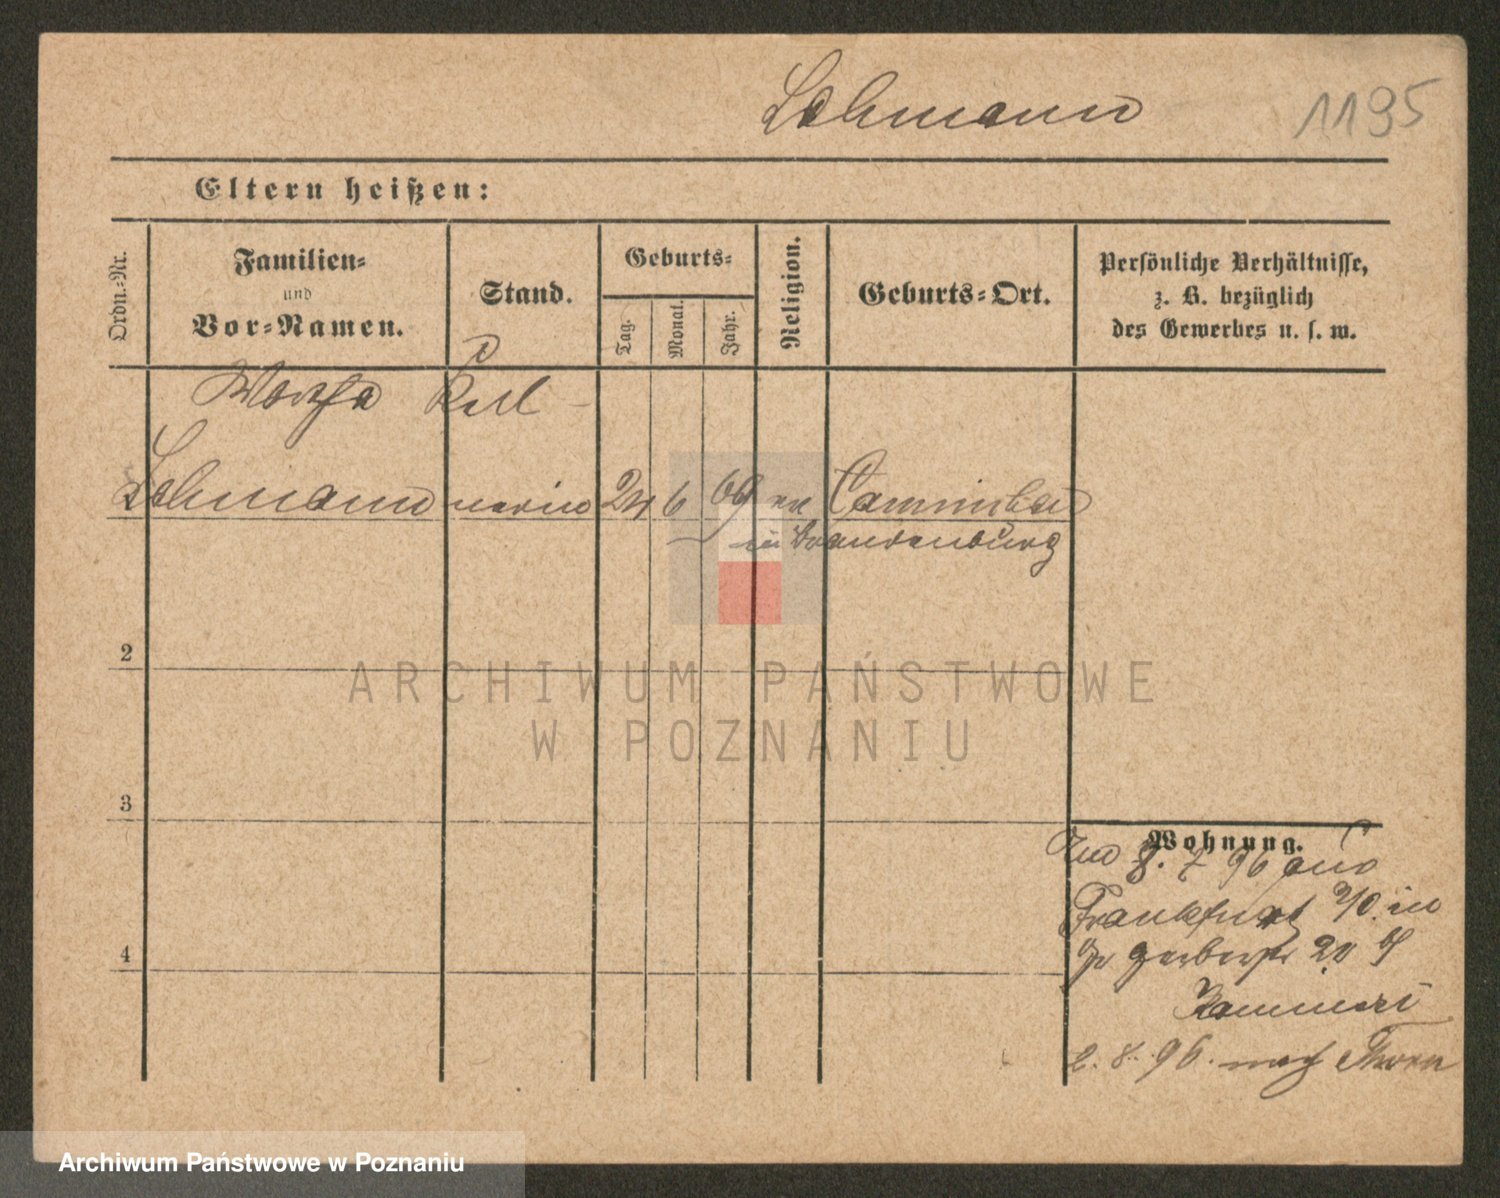 Lehmann 1195
Eltern heißen:
Ordn.-Nr.
Familien-
und
Vor-Namen.
Stand.
Geburts-
Tag.
Monat.
Jahr.
Religion.
Geburts-Ort.
Persönliche Verhältnisse,
z. B. bezüglich
des Gewerbes u. s. w.
Martha Kell-
Lehmann nerin 24 6 69 ev
in Brandenburg
2
3
4
Wohnung.
8. 7 96 aus
Frankfurt a/O. in
Gr Gerberstr 20 bei
2. 8. 96. nach Thorn
ARCHIWUM PAŃSTWOWE
W POZNANIU
Archiwum Państwowe w Poznaniu